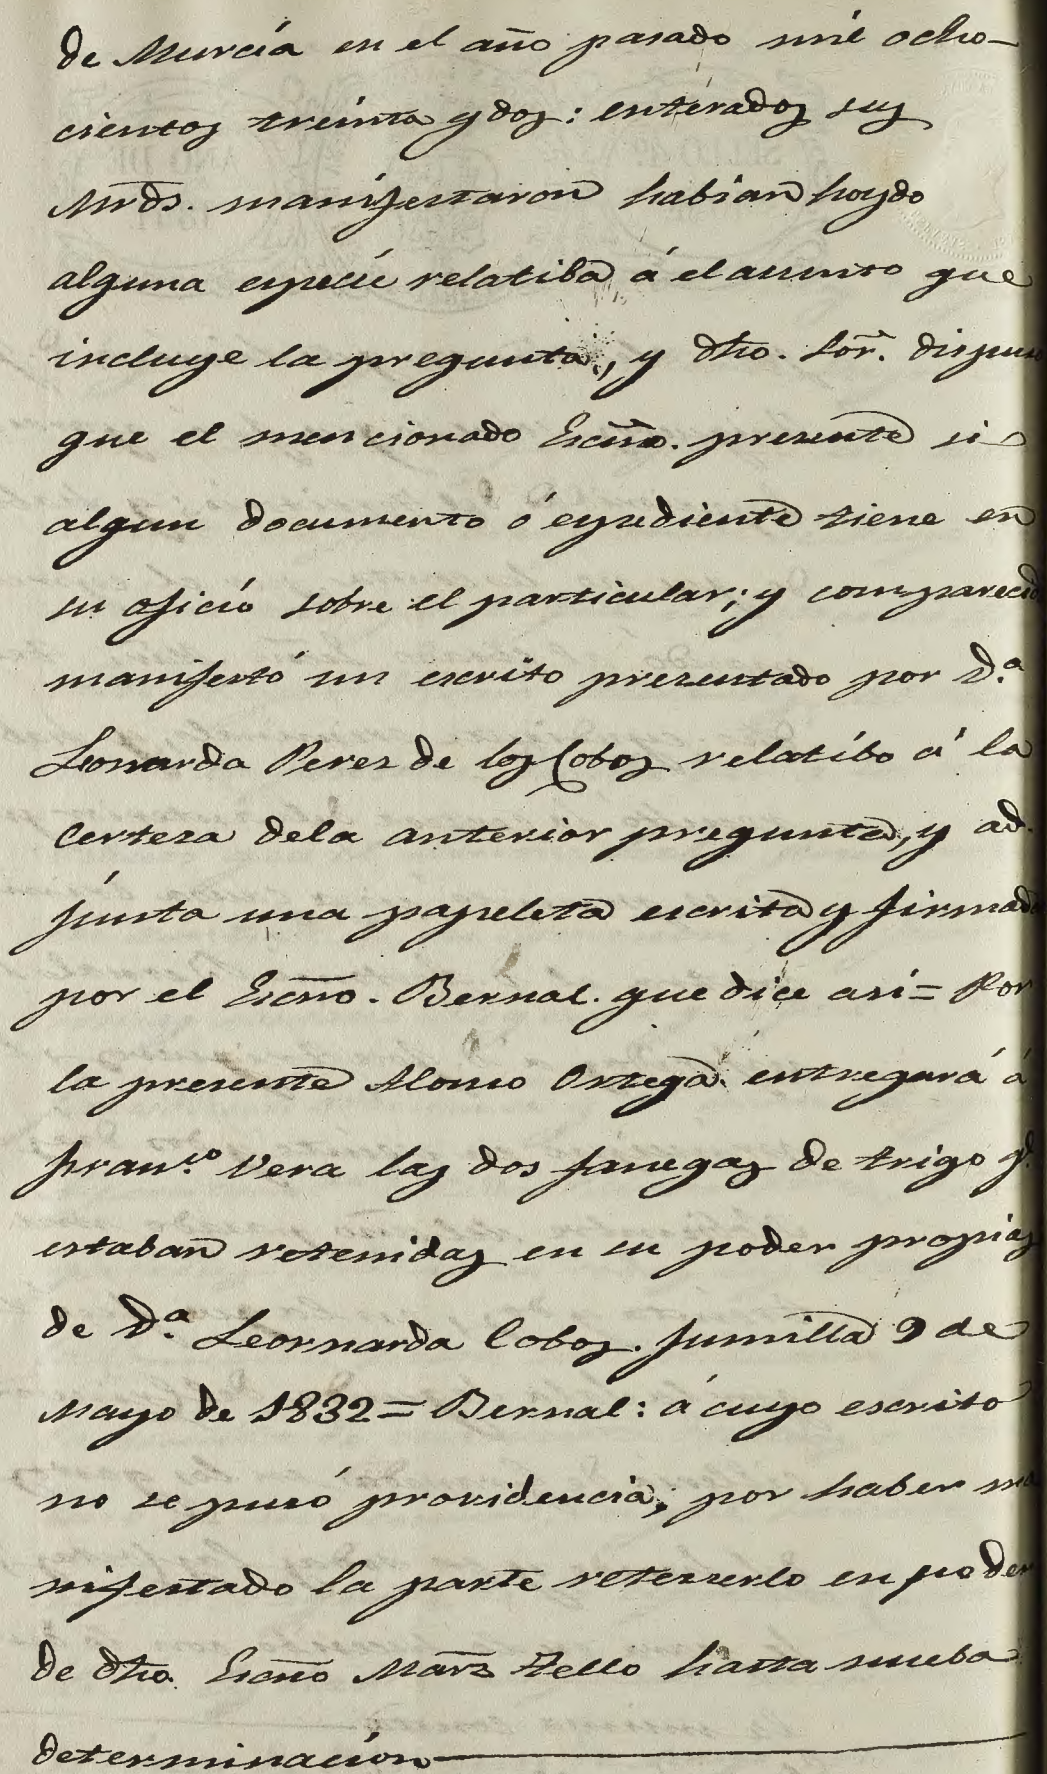 de Murcia en el año pasado mil ocho-
cientos treinta y dos: enterados sus
Mrds. manifestaron habian hoydo
alguna especie relatiba á el asunto que
incluye la pregunta, y dho. Sor. dispuso
que el mencionado Escño. presente si
algun documento ó espediente tiene en
su oficio sobre el particular; y comparecido
manifestó un escrito presentado por D.ª
Leonarda Perez de los Cobos relatibo á la
certeza dela anterior pregunta, y ad-
junta una papeleta escrita y firmada
por el Escño. Bernal. que dice asi = Por
la presente Alonso Ortega entregará á
Fran.co Vera las dos fanegas de trigo q.e
estaban retenidas en su poder propias
de D.ª Leornarda Cobos. Jumilla 9 de
Mayo de 1832 = Bernal: á cuyo escrito
no se pusó providencia, por haber ma
nifestado la parte retenerlo en poder
de dho. Escño Marz Tello hasta nueba
determinacion